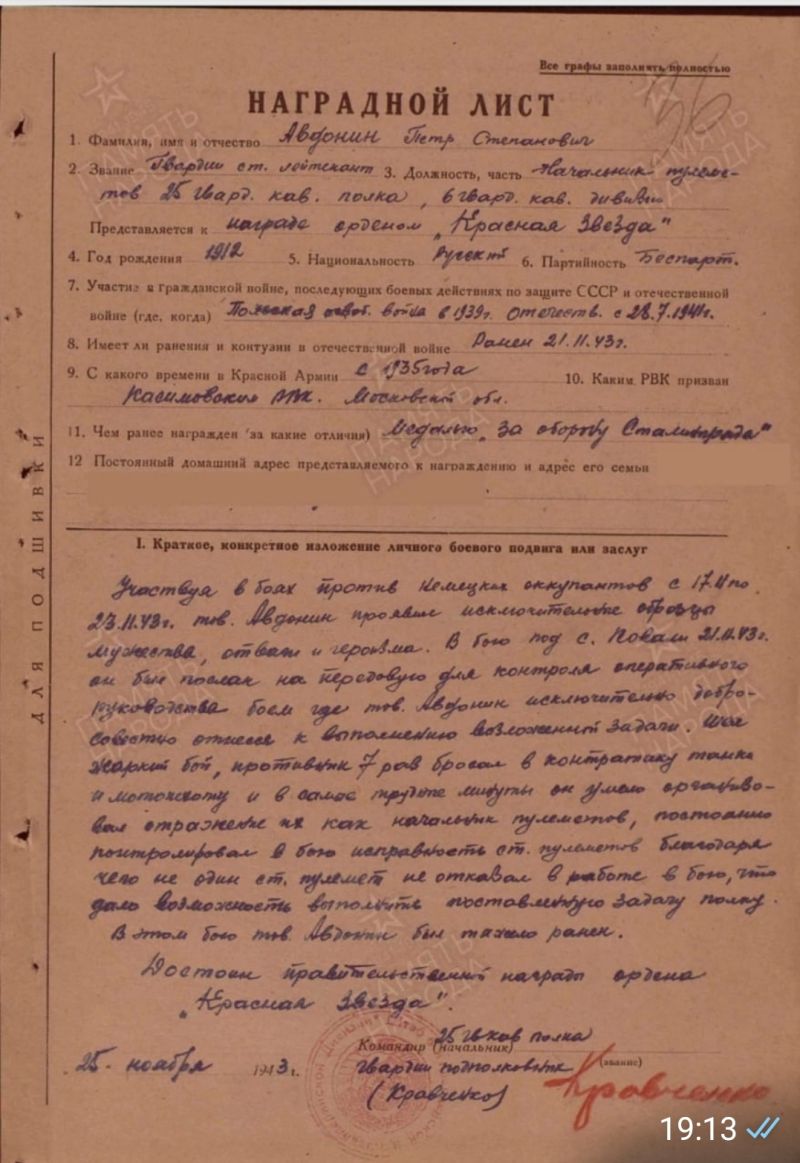 Все графы заполнять полностью
НАГРАДНОЙ ЛИСТ
1. Фамилия, имя и отчество Авдонин Петр Степанович
2. Звание Гвардии ст. лейтенант 3. Должность, часть Начальник пулеме-
тов 25 гвард. кав. полка, 6 гвард. кав. дивизии
Представляется к награде орденом „Красная Звезда"
4. Год рождения 1912 5. Национальность Русский 6. Партийность Беспарт.
7. Участие в гражданской войне, последующих боевых действиях по защите СССР и отечественной
войне (где, когда) Польская освоб. война в 1939г. Отечеств. с 28.7.1941г.
8. Имеет ли ранения и контузии в отечественной войне Ранен 21.11.43г.
9. С какого времени в Красной Армии с 1935 года 10. Каким РВК призван
Касимовским РВК. Московской обл.
11. Чем ранее награжден (за какие отличия) Медалью „За оборону Сталинграда"
12 Постоянный домашний адрес представляемого к награждению и адрес его семьи
I. Краткое, конкретное изложение личного боевого подвига или заслуг
Участвуя в боях против немецких оккупантов с 17.11 по
23.11.43г. тов. Авдонин проявил исключительные образцы
мужества, отваги и героизма. В бою под с. Ковали 21.11.43г.
он был послан на передовую для контроля оперативного
руководства боем где тов. Авдонин исключительно добро-
совестно отнесся к выполнению возложенной задачи. Шел
жаркий бой, противник 7 раз бросал в контратаку танки
и мотопехоту и в самые трудные минуты он умело организо-
вал отражение их как начальник пулеметов, постоянно
контролировал в бою исправность ст. пулеметов благодаря
чего не один ст. пулемет не отказал в работе в бою, что
дало возможность выполнить поставленную задачу полку.
В этом бою тов. Авдонин был тяжело ранен.
Достоин правительственной награды ордена
„Красная Звезда".
25 гв кав полка
Командир (начальник)
25. ноября 1943 г. гвардии подполковник (звание)
(Кравченко) Кравченко
ДЛЯ ПОДШИВКИ
ПАМЯТЬ НАРОДА
19:13